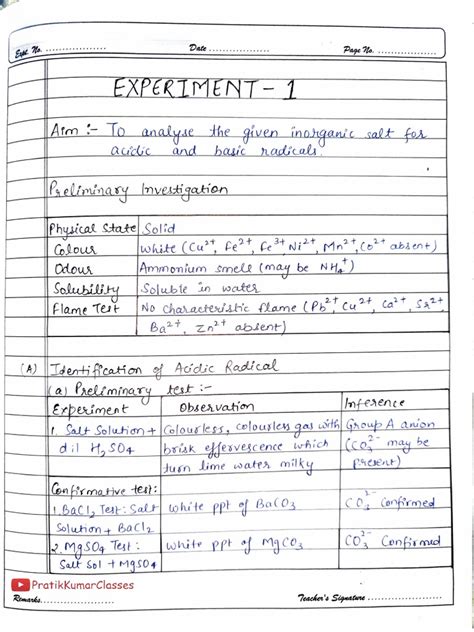 Expt. No. .................. Date .................. Page No. ..................
EXPERIMENT - 1
Aim :- To analyse the given inorganic salt for
acidic and basic radicals.
Preliminary Investigation
Physical State Solid
Colour White (Cu²⁺, Fe²⁺, Fe³⁺ Ni²⁺, Mn²⁺, Co²⁺ absent)
Odour Ammonium smell (may be NH₄⁺)
Solubility Soluble in water
Flame Test No characteristic flame (Pb²⁺, Cu²⁺, Ca²⁺, Sr²⁺,
Ba²⁺, Zn²⁺ absent)
(A) Identification of Acidic Radical
(a) Preliminary test :-
Experiment Observation Inference
1. Salt Solution + Colourless, colourless gas with Group A anion
dil H₂SO₄ brisk effervescence which (CO₃²⁻ may be
turn lime water milky present)
Confirmative test:
1. BaCl₂ Test: Salt white ppt of BaCO₃ CO₃²⁻ Confirmed
Solution + BaCl₂
2. MgSO₄ Test: white ppt of MgCO₃ CO₃²⁻ Confirmed
Salt Sol + MgSO₄
PratikKumarClasses
Remarks.................. Teacher's Signature ..................